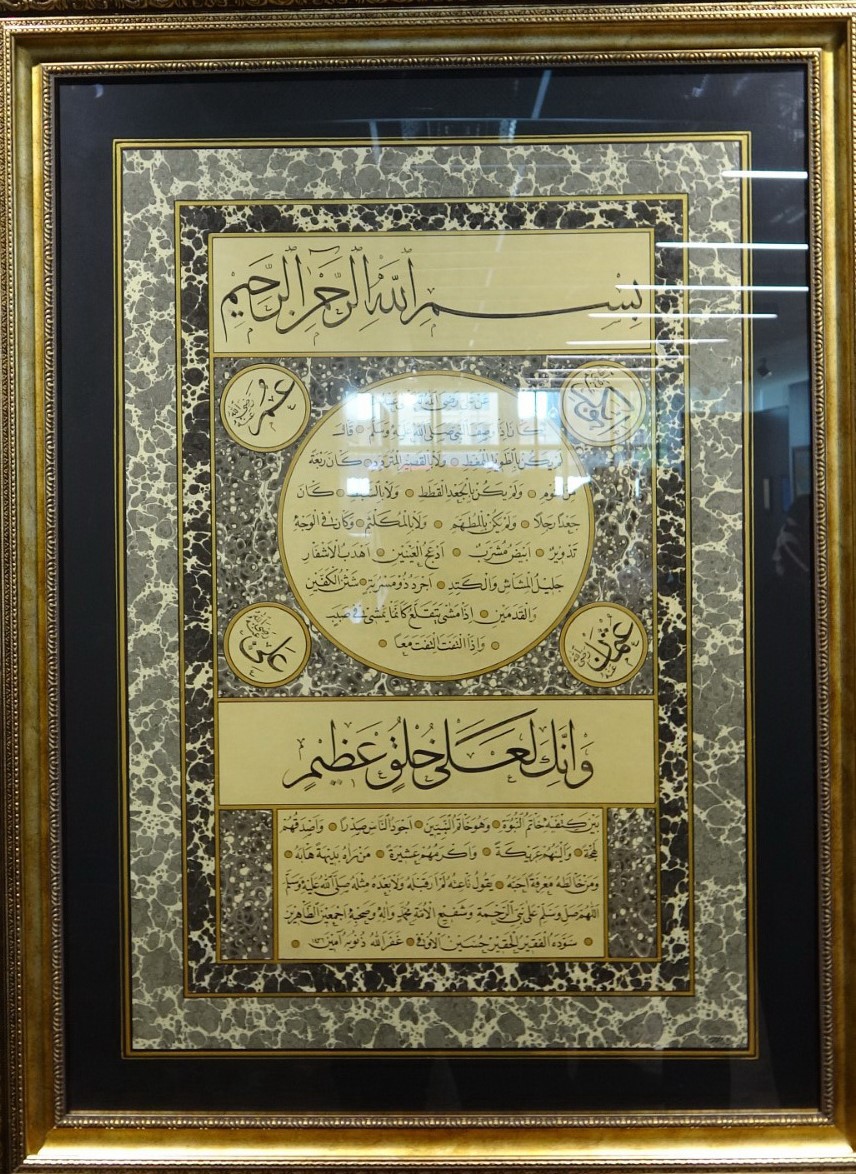 بِسْمِ اللّٰهِ الرَّحْمٰنِ الرَّحِيْمِ
عمر رضي الله عنه
عن علي رضي الله عنه
كان إذا وصف النبي صلى الله عليه وسلم قال
لم يكن بالطويل الممغط ولا بالقصير المتردد كان ربعة
من القوم ولم يكن بالجعد القطط ولا بالسبط كان
جعدا رجلا ولم يكن بالمطهم ولا بالمكلثم وكان في الوجه
تدوير ابيض مشرب ادعج العينين اهدب الاشفار
جليل المشاش والكتد اجرد ذو مسربة شثن الكفين
والقدمين اذا مشى تقلع كانما يمشي في صبب
واذا التفت التفت معا
عثمن رضي الله عنه
علي رضي الله عنه
وَاِنَّكَ لَعَلٰى خُلُقٍ عَظِيْمٍ
بين كتفيه خاتم النبوة وهو خاتم النبيين اجود الناس صدرا واصدقهم
لهجة والينهم عريكة واكرمهم عشيرة من رآه بديهة هابه
ومن خالطه معرفة احبه يقول ناعته لم ار قبله ولا بعده مثله صلى الله عليه وسلم
اللهم صل وسلم على نبي الرحمة وشفيع الامة محمد واله وصحبه اجمعين الطاهرين
سوده الفقير الحقير حسين غفر الله ذنوبه امين